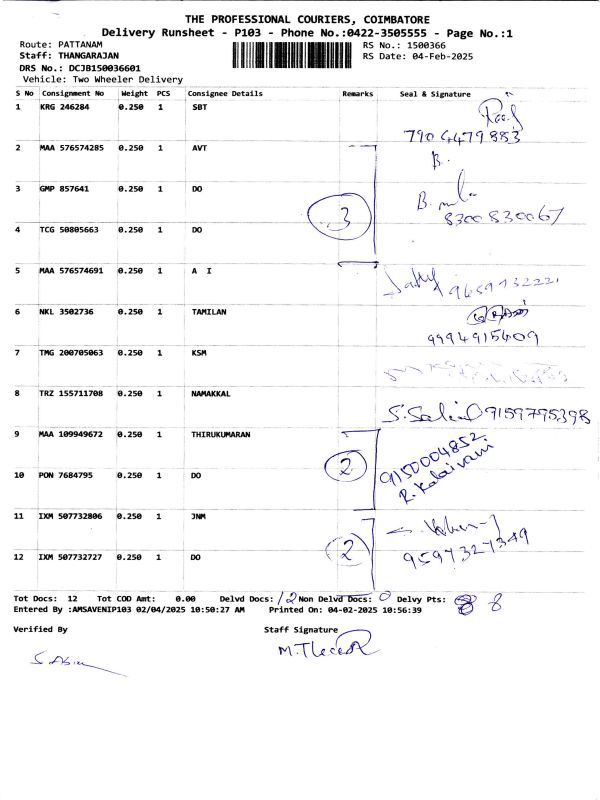 THE PROFESSIONAL COURIERS, COIMBATORE
Delivery Runsheet - P103 - Phone No.:0422-3505555 - Page No.:1
Route: PATTANAM RS No.: 1500366
Staff: THANGARAJAN RS Date: 04-Feb-2025
DRS No.: DCJB150036601
Vehicle: Two Wheeler Delivery
S No Consignment No Weight PCS Consignee Details Remarks Seal & Signature
1 KRG 246284 0.250 1 SBT
7904479883
2 MAA 576574285 0.250 1 AVT B.
3 GMP 857641 0.250 1 DO 3 B.
8300830067
4 TCG 50805663 0.250 1 DO
5 MAA 576574691 0.250 1 A I 9659732221
6 NKL 3502736 0.250 1 TAMILAN
9994915409
7 TMG 200705063 0.250 1 KSM
8 TRZ 155711708 0.250 1 NAMAKKAL 9159795398
9 MAA 109949672 0.250 1 THIRUKUMARAN 9150004852.
10 PON 7684795 0.250 1 DO 2 R. Kalaivani
11 IXM 507732806 0.250 1 JNM
12 IXM 507732727 0.250 1 DO 2 9597327349
Tot Docs: 12 Tot COD Amt: 0.00 Delvd Docs: 12 Non Delvd Docs: 0 Delvy Pts: 8
Entered By :AMSAVENIP103 02/04/2025 10:50:27 AM Printed On: 04-02-2025 10:56:39
Verified By Staff Signature